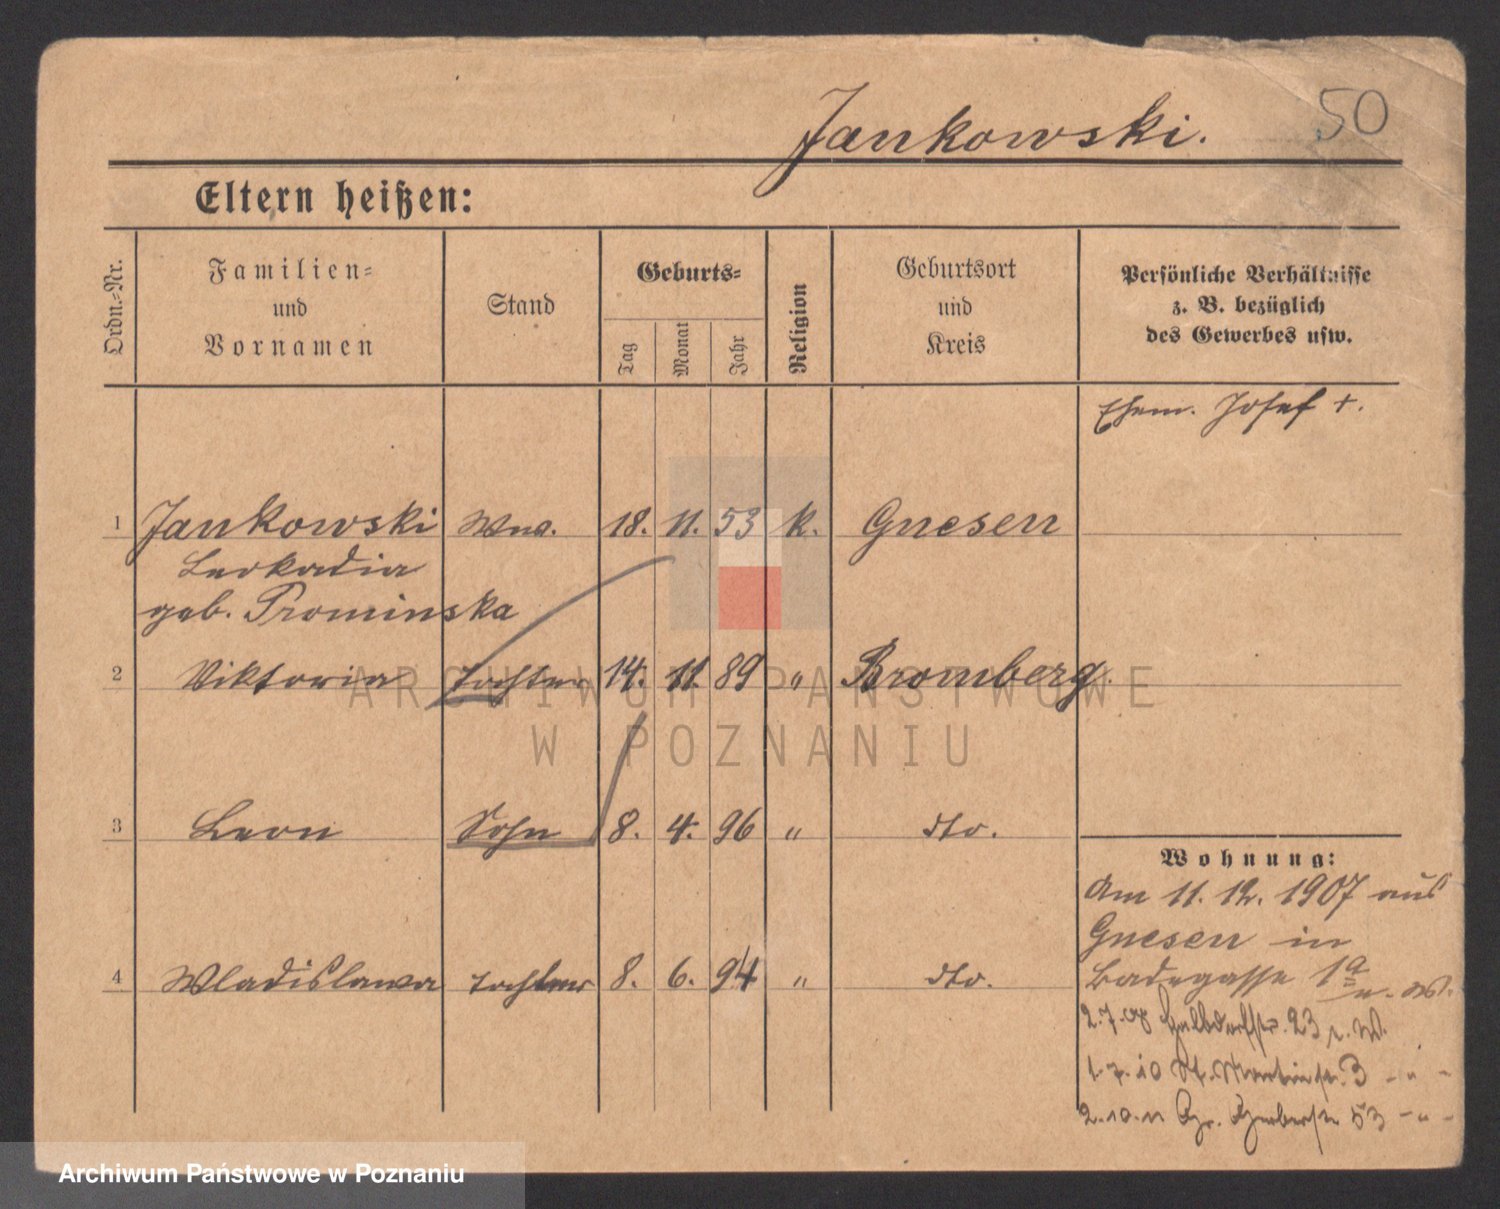 Jankowski.
50
Eltern heißen:
Ordn.-Nr.
Familien- und Vornamen
Stand
Geburts-
Tag
Monat
Jahr
Religion
Geburtsort und Kreis
Persönliche Verhältnisse
z. B. bezüglich
des Gewerbes usw.
Ehem. Josef +.
1 Jankowski Wwe. 18. 11. 53 k. Gnesen
Leokadia
geb. Prominska
2 Viktoria Tochter 14. 11. 89 " Bromberg.
ARCHIWUM PAŃSTWOWE
W POZNANIU
3 Leon Sohn 8. 4. 96 " dto.
Wohnung:
Am 11. 12. 1907 aus
Gnesen in
4 Wladislawa Tochter 8. 6. 94 " dto.
Badegasse 1a
b. W.
2.7.08 Halbdorfstr. 23 b. W.
1.7.10 St. Martinstr. 3 - " -
2.10.11 Gr. Gerberstr. 53 - " -
Archiwum Państwowe w Poznaniu